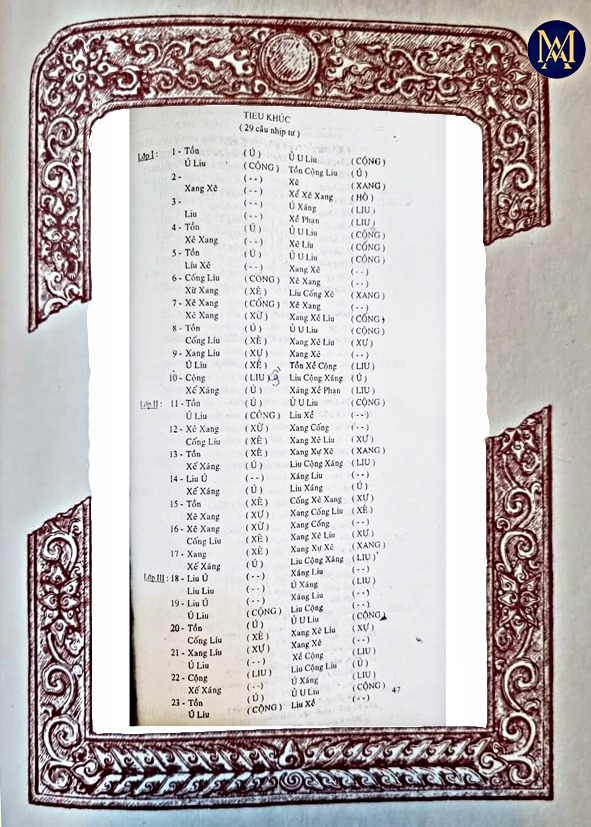 MA
TIỂU KHÚC
( 29 câu nhịp tư )
Lớp I : 1 - Tồn ( Ú ) Ủ U Liu ( CỘNG )
Ú Liu ( CỘNG ) Tồn Cộng Liu ( Ú )
2 - ( - - ) Xê ( XANG )
Xang Xê ( - - ) Xề Xê Xang ( HÒ )
3 - ( - - ) Ú Xáng ( LIU )
Liu ( - - ) Xề Phan ( LIU )
4 - Tồn ( Ú ) Ủ U Liu ( CỘNG )
Xê Xang ( - - ) Xê Líu ( CỐNG )
5 - Tồn ( Ú ) Ủ U Liu ( CỘNG )
Líu Xê ( - - ) Xang Xê ( - - )
6 - Cống Líu ( CỐNG ) Xê Xang ( - - )
Xừ Xang ( XÊ ) Liu Cống Xê ( XANG )
7 - Xê Xang ( CỐNG ) Xê Xang ( - - )
Xê Xang ( XỪ ) Xang Xê Líu ( CỐNG )
8 - Tồn ( Ú ) Ủ U Liu ( CỘNG )
Cống Líu ( XÊ ) Xang Xê Líu ( XỰ )
9 - Xang Líu ( XỰ ) Xang Xê ( - - )
Ú Liu ( XỀ ) Tồn Xề Cộng ( LIU )
10 - Cộng ( LIU ) Liu Cộng Xáng ( Ú )
Xế Xáng ( Ú ) Xáng Xề Phan ( LIU )
Lớp II : 11 - Tồn ( Ú ) Ủ U Liu ( CỘNG )
Ú Liu ( CỘNG ) Liu Xề ( - - )
12 - Xê Xang ( XỪ ) Xang Cống ( - - )
Cống Líu ( XÊ ) Xang Xê Líu ( XỰ )
13 - Tồn ( XÊ ) Xang Xự Xê ( XANG )
Xế Xáng ( Ú ) Liu Cộng Xáng ( LIU )
14 - Liu Ú ( - - ) Xáng Liu ( - - )
Xế Xáng ( Ú ) Liu Xáng ( Ú )
15 - Tồn ( XÊ ) Cống Xê Xang ( XỰ )
Xê Xang ( XỰ ) Xang Cống Líu ( XÊ )
16 - Xê Xang ( XỪ ) Xang Cống ( - - )
Cống Líu ( XÊ ) Xang Xê Líu ( XỰ )
17 - Xang ( XÊ ) Xang Xự Xê ( XANG )
Xế Xáng ( Ú ) Liu Cộng Xáng ( LIU )
Lớp III : 18 - Liu Ú ( - - ) Xáng Liu ( - - )
Liu Liu ( - - ) Ú Xáng ( LIU )
19 - Liu Ú ( - - ) Xáng Liu ( - - )
Ú Liu ( CỘNG ) Liu Cộng ( - - )
20 - Tồn ( Ú ) Ủ U Liu ( CỘNG )
Cống Líu ( XÊ ) Xang Xê Líu ( XỰ )
21 - Xang Líu ( XỰ ) Xang Xê ( - - )
Ú Liu ( - - ) Xề Cộng ( LIU )
22 - Cộng ( LIU ) Liu Cộng Liu ( Ú )
Xế Xáng ( - - ) Ú Xáng ( LIU )
23 - Tồn ( Ú ) Ủ U Liu ( CỘNG )
Ú Liu ( CỘNG ) Liu Xề ( - - )
47